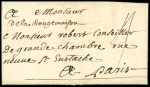 A Monsieur
De la Rougemaison
A Monsieur robert Conseiller
de grande chambre rue
neuve St Eustache
A Paris